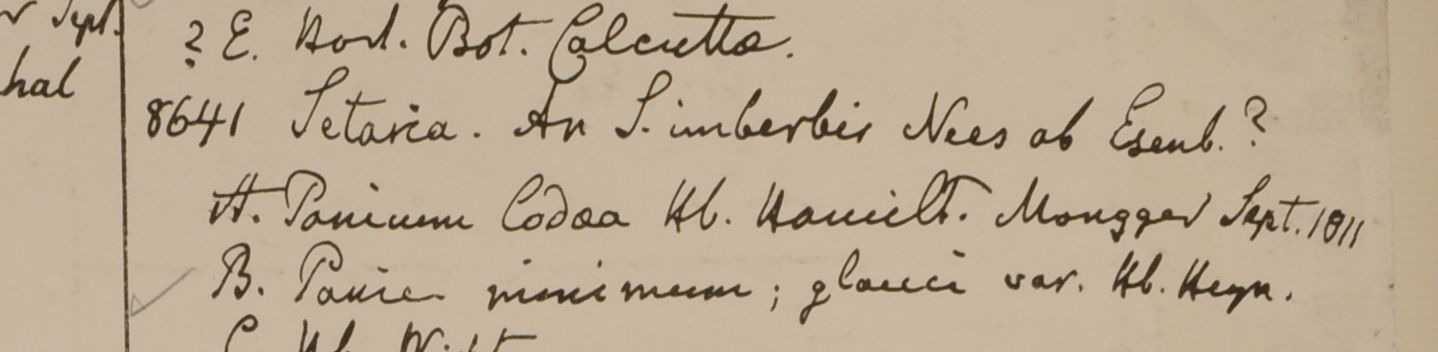 Sept.
hal
? E. Hort. Bot. Calcutta.
8641 Setaria. An S. imberbis Nees ab Esenb.?
A. Panicum Codaa Hb. Hamilt. Mongger Sept. 1811
B. Panic minimum; glauci var. Hb. Heyn.
C Hb. Wight